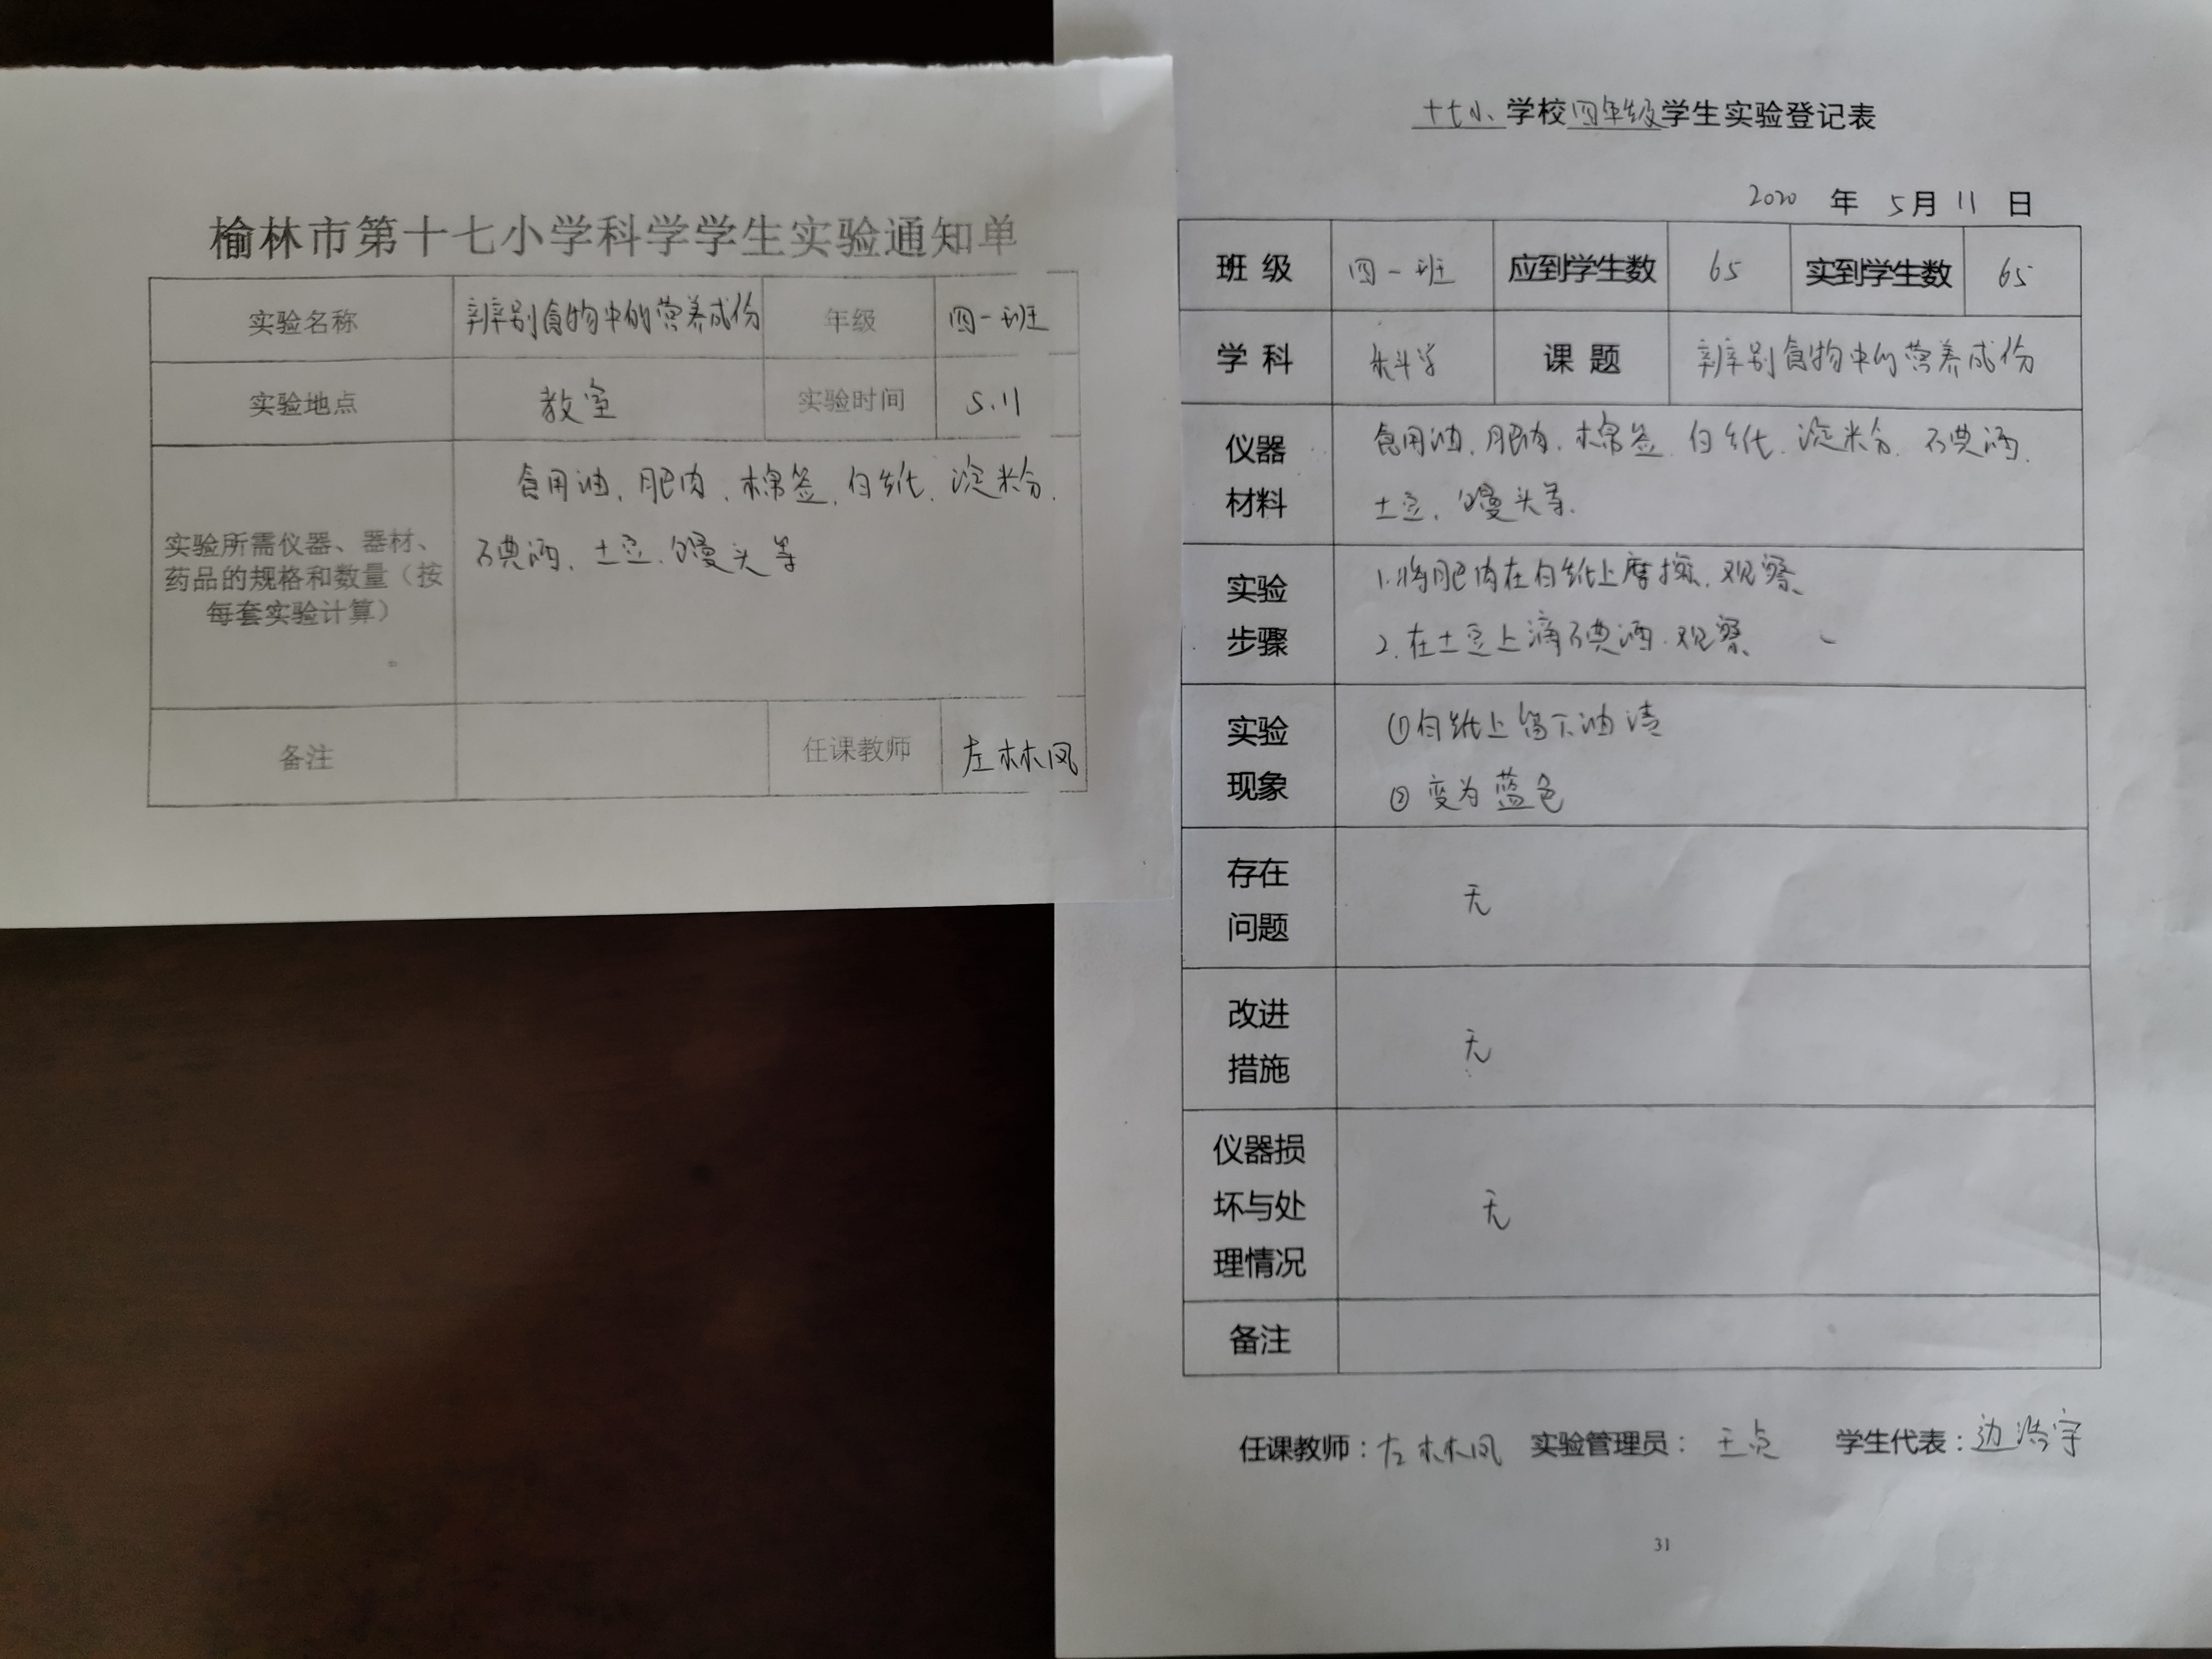 榆林市第十七小学科学学生实验通知单
实验名称 辨别食物中的营养成份 年级 四一班
实验地点 教室 实验时间 5.11
实验所需仪器、器材、
药品的规格和数量（按
每套实验计算）
食用油、肥肉、棉签、白纸、淀粉、
碘酒、土豆、馒头等
备注 任课教师 左林风
十七小学校四年级学生实验登记表
2020 年 5月 11 日
班 级 四一班 应到学生数 65 实到学生数 65
学 科 科学 课 题 辨别食物中的营养成份
仪器
材料
食用油、肥肉、棉签、白纸、淀粉、碘酒、
土豆、馒头等.
实验
步骤
1.将肥肉在白纸上摩擦、观察、
2.在土豆上滴碘酒.观察、
实验
现象
①白纸上留下油渍
②变为蓝色
存在
问题
无
改进
措施
无
仪器损
坏与处
理情况
无
备注
任课教师：左林风 实验管理员： 学生代表：边浩宇
31